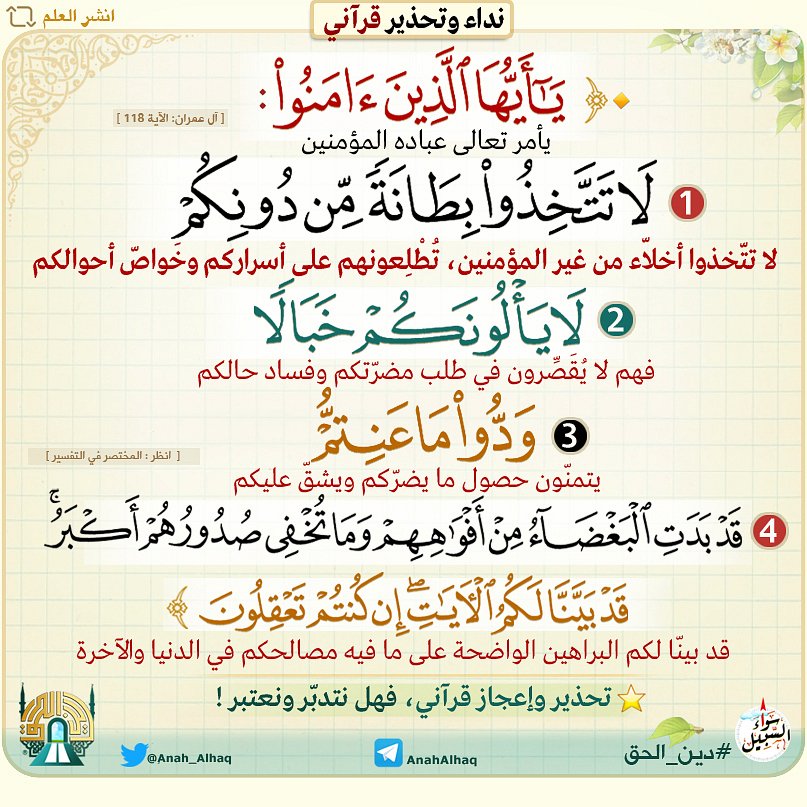 نداء وتحذير قرآني
انشر العلم
﴿ يَـٰٓأَيُّهَا ٱلَّذِينَ ءَامَنُوا۟ :
[ آل عمران: الآية 118 ]
يأمر تعالى عباده المؤمنين
1 لَا تَتَّخِذُوا۟ بِطَانَةً مِّن دُونِكُمْ
لا تتّخذوا أخلاّء من غير المؤمنين، تُطْلِعونهم على أسراركم وخَواصّ أحوالكم
2 لَا يَأْلُونَكُمْ خَبَالًا
فهم لا يُقَصِّرون في طلب مضرّتكم وفساد حالكم
3 وَدُّوا۟ مَا عَنِتُّمْ
[ انظر : المختصر في التفسير ]
يتمنّون حصول ما يضرّكم ويشقّ عليكم
4 قَدْ بَدَتِ ٱلْبَغْضَآءُ مِنْ أَفْوَٰهِهِمْ وَمَا تُخْفِى صُدُورُهُمْ أَكْبَرُ ۚ
قَدْ بَيَّنَّا لَكُمُ ٱلْـَٔايَـٰتِ ۖ إِن كُنتُمْ تَعْقِلُونَ ﴾
قد بينّا لكم البراهين الواضحة على ما فيه مصالحكم في الدنيا والآخرة
تحذير وإعجاز قرآني، فهل نتدبّر ونعتبر !
سواء السبيل
#دين_الحق
AnahAlhaq
@Anah_Alhaq